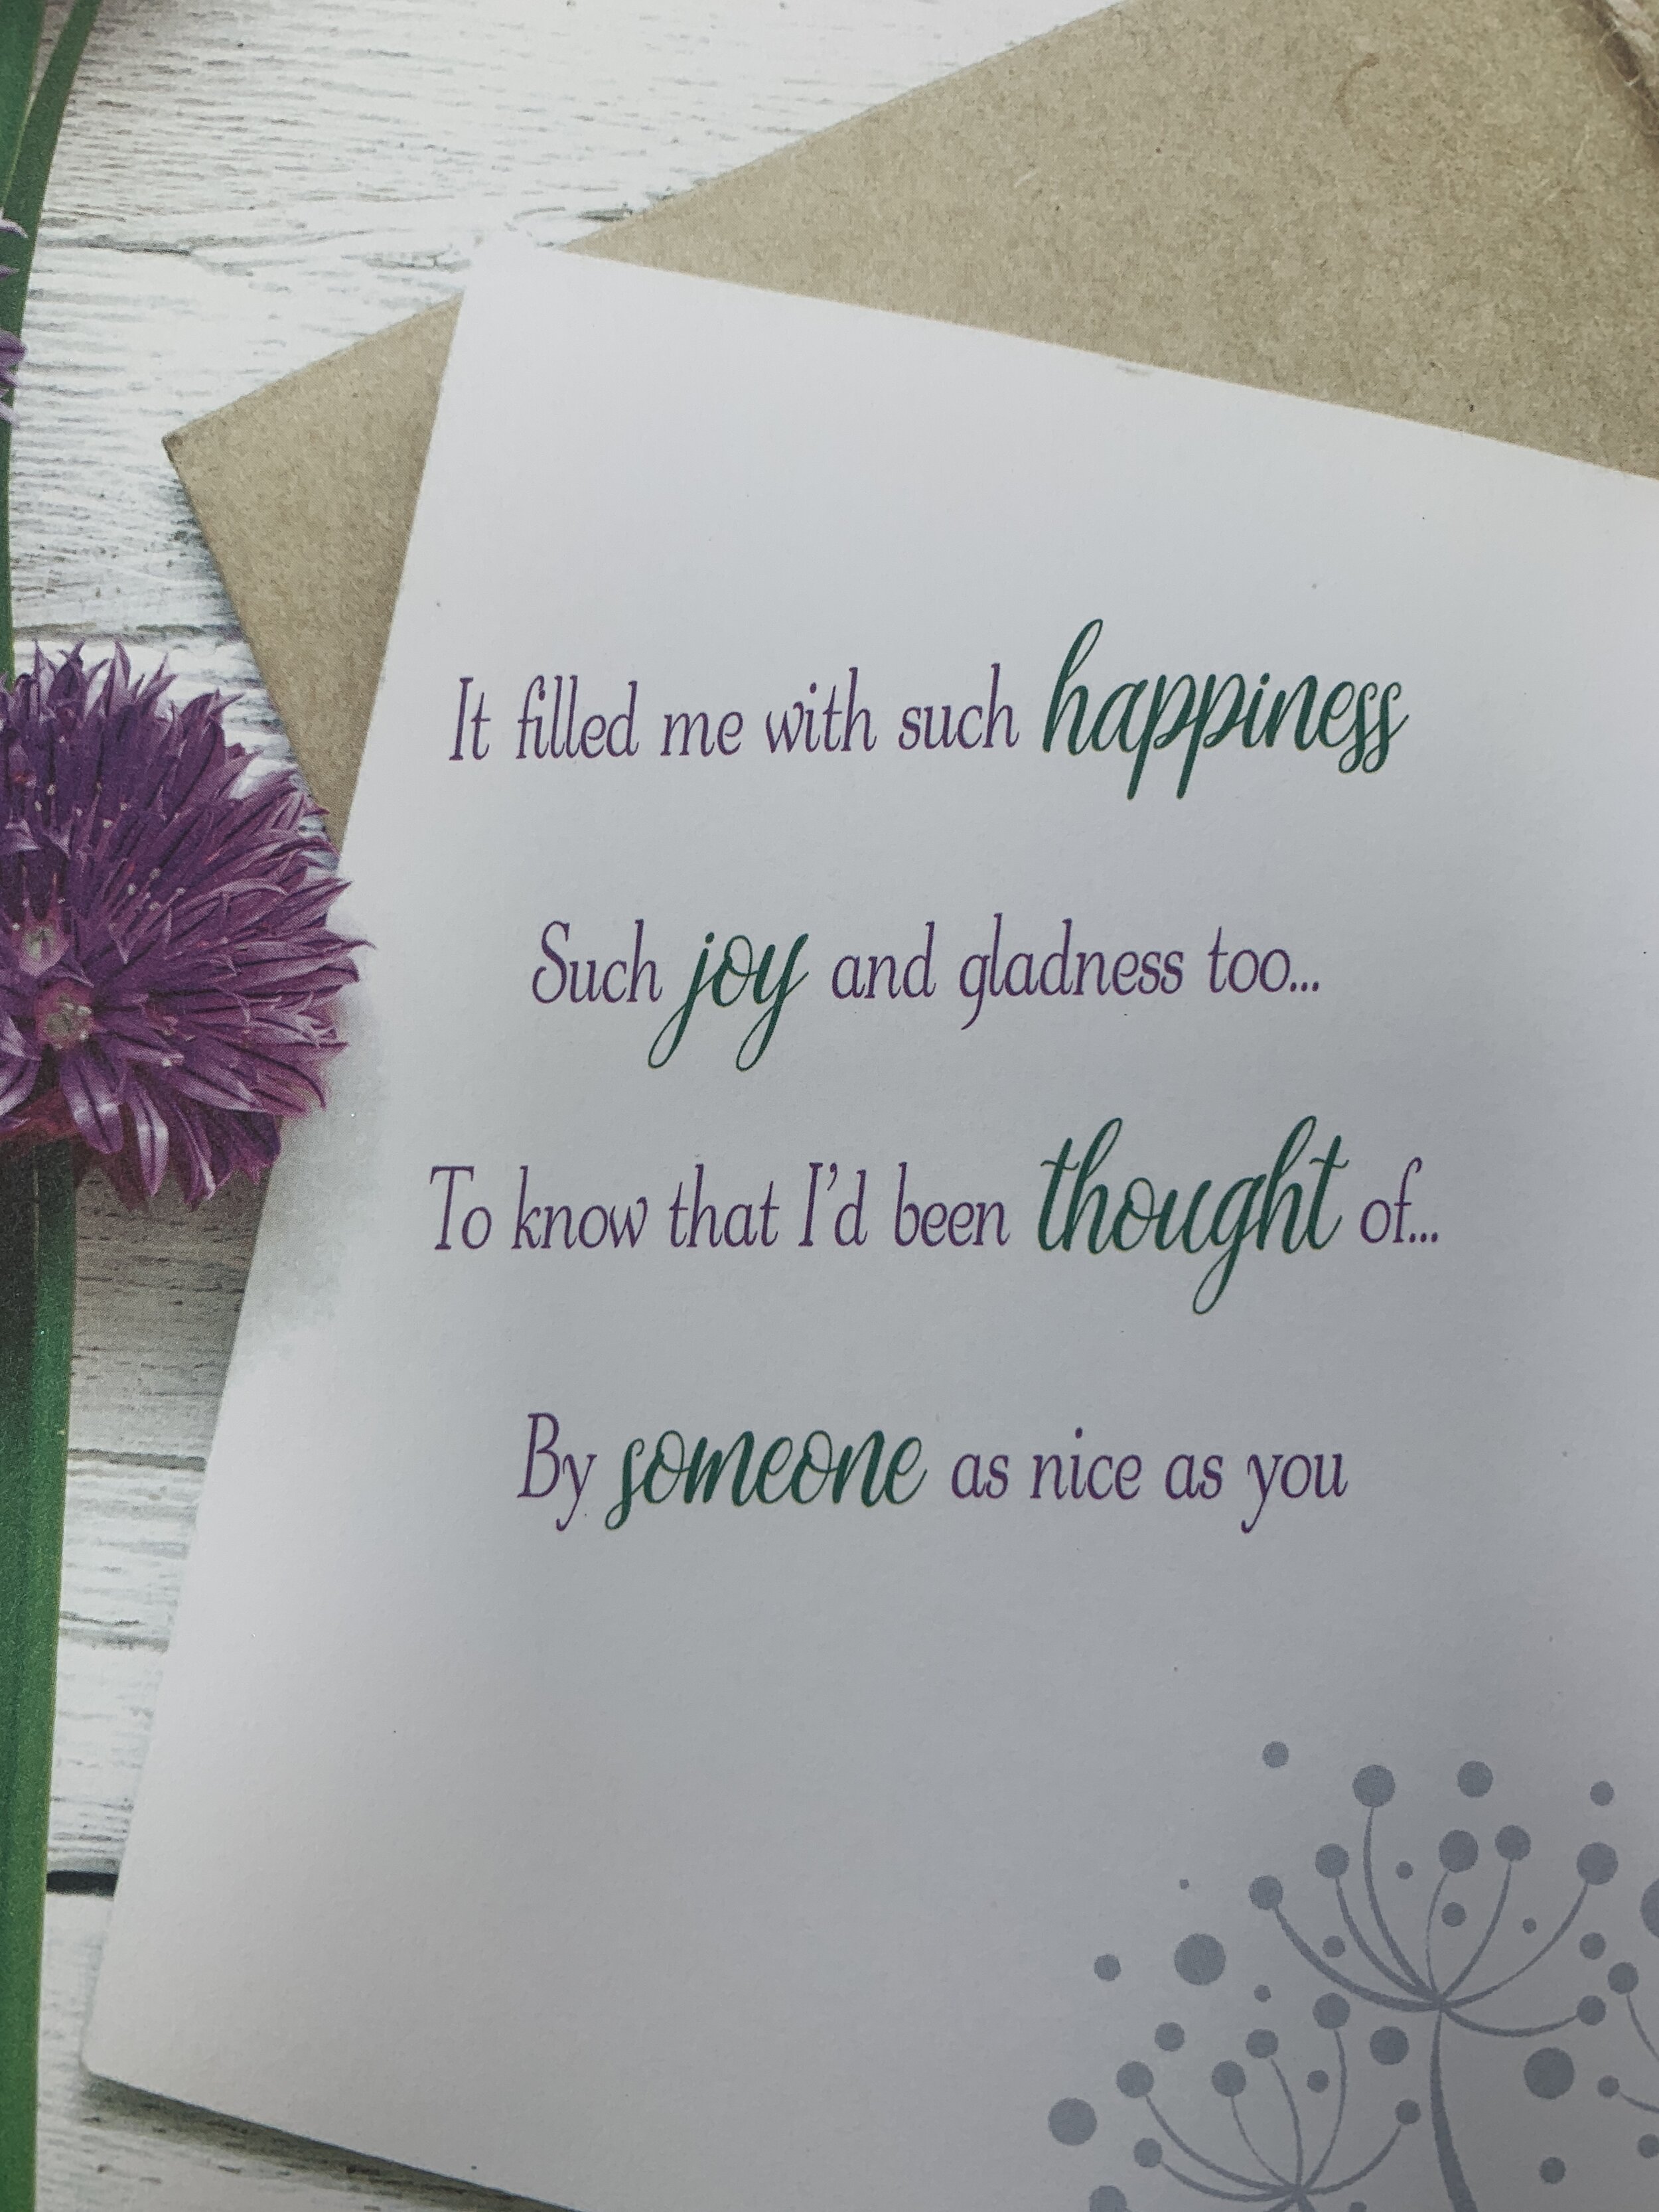 It filled me with such happiness
Such joy and gladness too...
To know that I'd been thought of...
By someone as nice as you